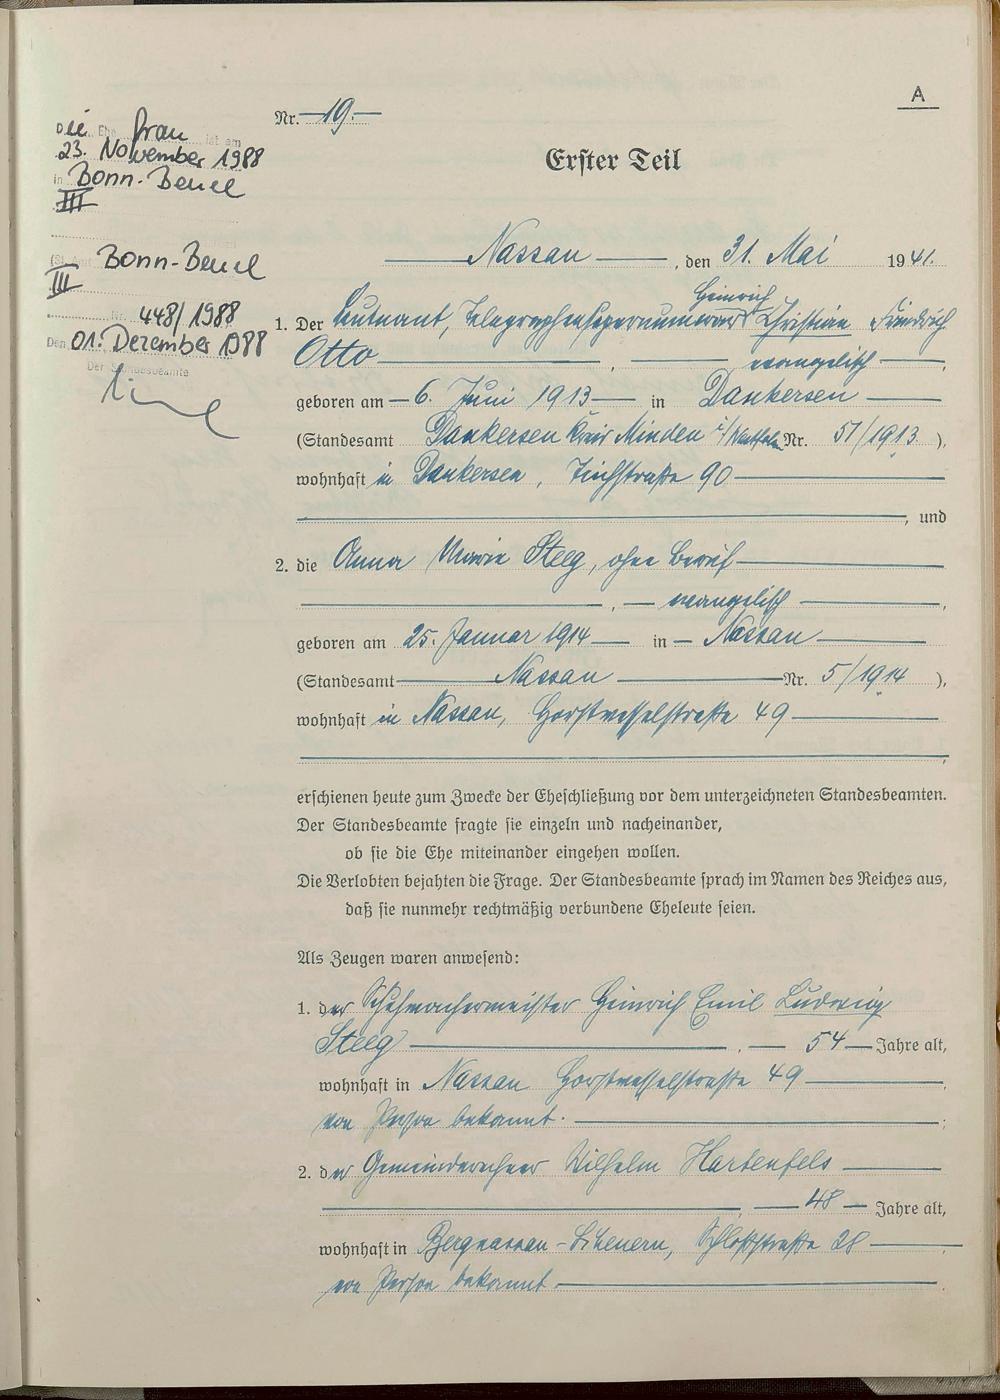 A
Nr. 19.
Erster Teil
Die Ehefrau ist am
23. November 1988
in Bonn-Beuel
III
Bonn-Beuel
III
Nr. 448/1988
Den 01. Dezember 1988
Der Standesbeamte
Nassau, den 31. Mai 1941.
1. Der Leutnant, Telegraphensupernumerar Heinrich Christian Friedrich
Otto, evangelisch,
geboren am 6. Juni 1913 in Dankersen
(Standesamt Dankersen Kreis Minden i/Westfalen Nr. 51/1913),
wohnhaft in Dankersen, 90
, und
2. die Anna Marie Steeg, ohne Beruf
, evangelisch,
geboren am 25. Januar 1914 in Nassau
(Standesamt Nassau Nr. 5/1914),
wohnhaft in Nassau, Horstwesselstraße 49
erschienen heute zum Zwecke der Eheschließung vor dem unterzeichneten Standesbeamten.
Der Standesbeamte fragte sie einzeln und nacheinander,
ob sie die Ehe miteinander eingehen wollen.
Die Verlobten bejahten die Frage. Der Standesbeamte sprach im Namen des Reiches aus,
daß sie nunmehr rechtmäßig verbundene Eheleute seien.
Als Zeugen waren anwesend:
1. der Schuhmachermeister Heinrich Emil Ludwig
Steeg, 54 Jahre alt,
wohnhaft in Nassau Horstwesselstraße 49,
von Person bekannt.;
2. der Gemeinderechner Wilhelm Hartenfels
, 48 Jahre alt,
wohnhaft in Bergnassau-Scheuern, Schloßstraße 28
von Person bekannt